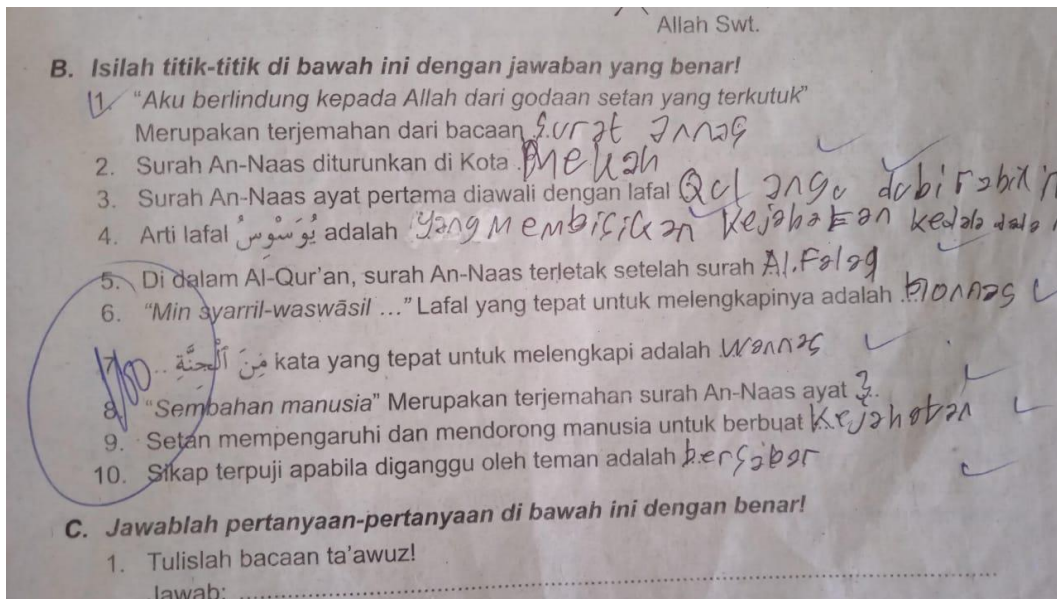 Allah Swt.
B. Isilah titik-titik di bawah ini dengan jawaban yang benar!
1. "Aku berlindung kepada Allah dari godaan setan yang terkutuk"
Merupakan terjemahan dari bacaan surat annas
2. Surah An-Naas diturunkan di Kota Mekah
3. Surah An-Naas ayat pertama diawali dengan lafal Qul
4. Arti lafal يُوَسْوِسُ adalah yang Membisikan kejahatan
5. Di dalam Al-Qur'an, surah An-Naas terletak setelah surah Al.Falag
6. "Min syarril-waswāsil ..." Lafal yang tepat untuk melengkapinya adalah
7. ... مِنَ ٱلْجِنَّةِ kata yang tepat untuk melengkapi adalah Wannas
8. "Sembahan manusia" Merupakan terjemahan surah An-Naas ayat 3.
9. Setan mempengaruhi dan mendorong manusia untuk berbuat Kejahatan
10. Sikap terpuji apabila diganggu oleh teman adalah bersabar
C. Jawablah pertanyaan-pertanyaan di bawah ini dengan benar!
1. Tulislah bacaan ta'awuz!
Jawab: